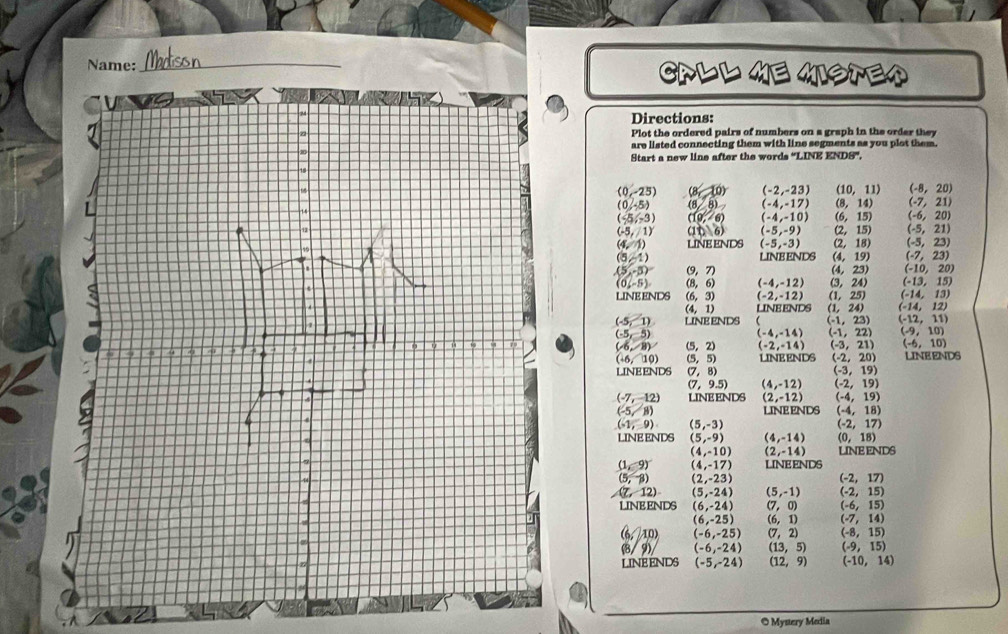 Name: Madison
CALL ME MISTER
Directions:
Plot the ordered pairs of numbers on a graph in the order they
are listed connecting them with line segments as you plot them.
Start a new line after the words "LINE ENDS".
(0,-25)
(0,-5)
(-5,-3)
(-5, 1)
(5, 1)
(5,-3)
(0,-5)
LINE ENDS
(-5, 1)
(-5, 5)
(-6, 8)
(-6, 10)
LINE ENDS
(-7, 12)
(-5, 8)
(-1, 9)
LINE ENDS
(1, 9)
(5, 8)
(7, 12)
LINE ENDS
(6, 10)
(8, 9)
LINE ENDS
(8, 10)
(8, 8)
(10, 6)
(11, 6)
LINE ENDS
(9, 7)
(8, 6)
(6, 3)
(4, 1)
LINE ENDS
(5, 2)
(5, 5)
(7, 8)
(7, 9.5)
LINE ENDS
(5,-3)
(5,-9)
(4,-10)
(4,-17)
(2,-23)
(5,-24)
(6,-24)
(6,-25)
(-6,-25)
(-6,-24)
(-5,-24)
(-2,-23)
(-4,-17)
(-4,-10)
(-5,-9)
(-5,-3)
LINE ENDS
(-4,-12)
(-2,-12)
LINE ENDS
(
(-4,-14)
(-2,-14)
LINE ENDS
(4,-12)
(2,-12)
LINE ENDS
(4,-14)
(2,-14)
LINE ENDS
(5,-1)
(7, 0)
(6, 1)
(7, 2)
(13, 5)
(12, 9)
(10, 11)
(8, 14)
(6, 15)
(2, 15)
(2, 18)
(4, 19)
(4, 23)
(3, 24)
(1, 25)
(1, 24)
(-1, 23)
(-1, 22)
(-3, 21)
(-2, 20)
(-3, 19)
(-2, 19)
(-4, 19)
(-4, 18)
(-2, 17)
(0, 18)
LINE ENDS
(-2, 17)
(-2, 15)
(-6, 15)
(-7, 14)
(-8, 15)
(-9, 15)
(-10, 14)
(-8, 20)
(-7, 21)
(-6, 20)
(-5, 21)
(-5, 23)
(-7, 23)
(-10, 20)
(-13, 15)
(-14, 13)
(-14, 12)
(-12, 11)
(-9, 10)
(-6, 10)
LINE ENDS
© Mystery Media